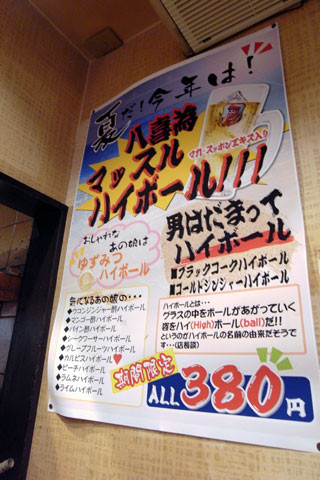 夏だ!今年は!
八喜為
マッスル
ハイボール!!!
マカ・スッポンエキス入り
おしゃれな
あの娘は
ゆずみつ
ハイボール
男はだまって
ハイボール
■ブラックコークハイボール
■ゴールドジンジャーハイボール
気になるあの娘の・・・
◆ウコンジンジャー酢ハイボール
◆マンゴー酢ハイボール
◆パイン酢ハイボール
◆シークワーサーハイボール
◆グレープフルーツハイボール
◆カルピスハイボール♥
◆ピーチハイボール
◆ラムネハイボール
◆ライムハイボール
ハイボールとは・・・
グラスの中をボールがあがっていく
姿をハイ(High)ボール(ball)だ!!
というのがハイボールの名前の由来だそうで
す・・・(店長談)
期間限定
ALL380円